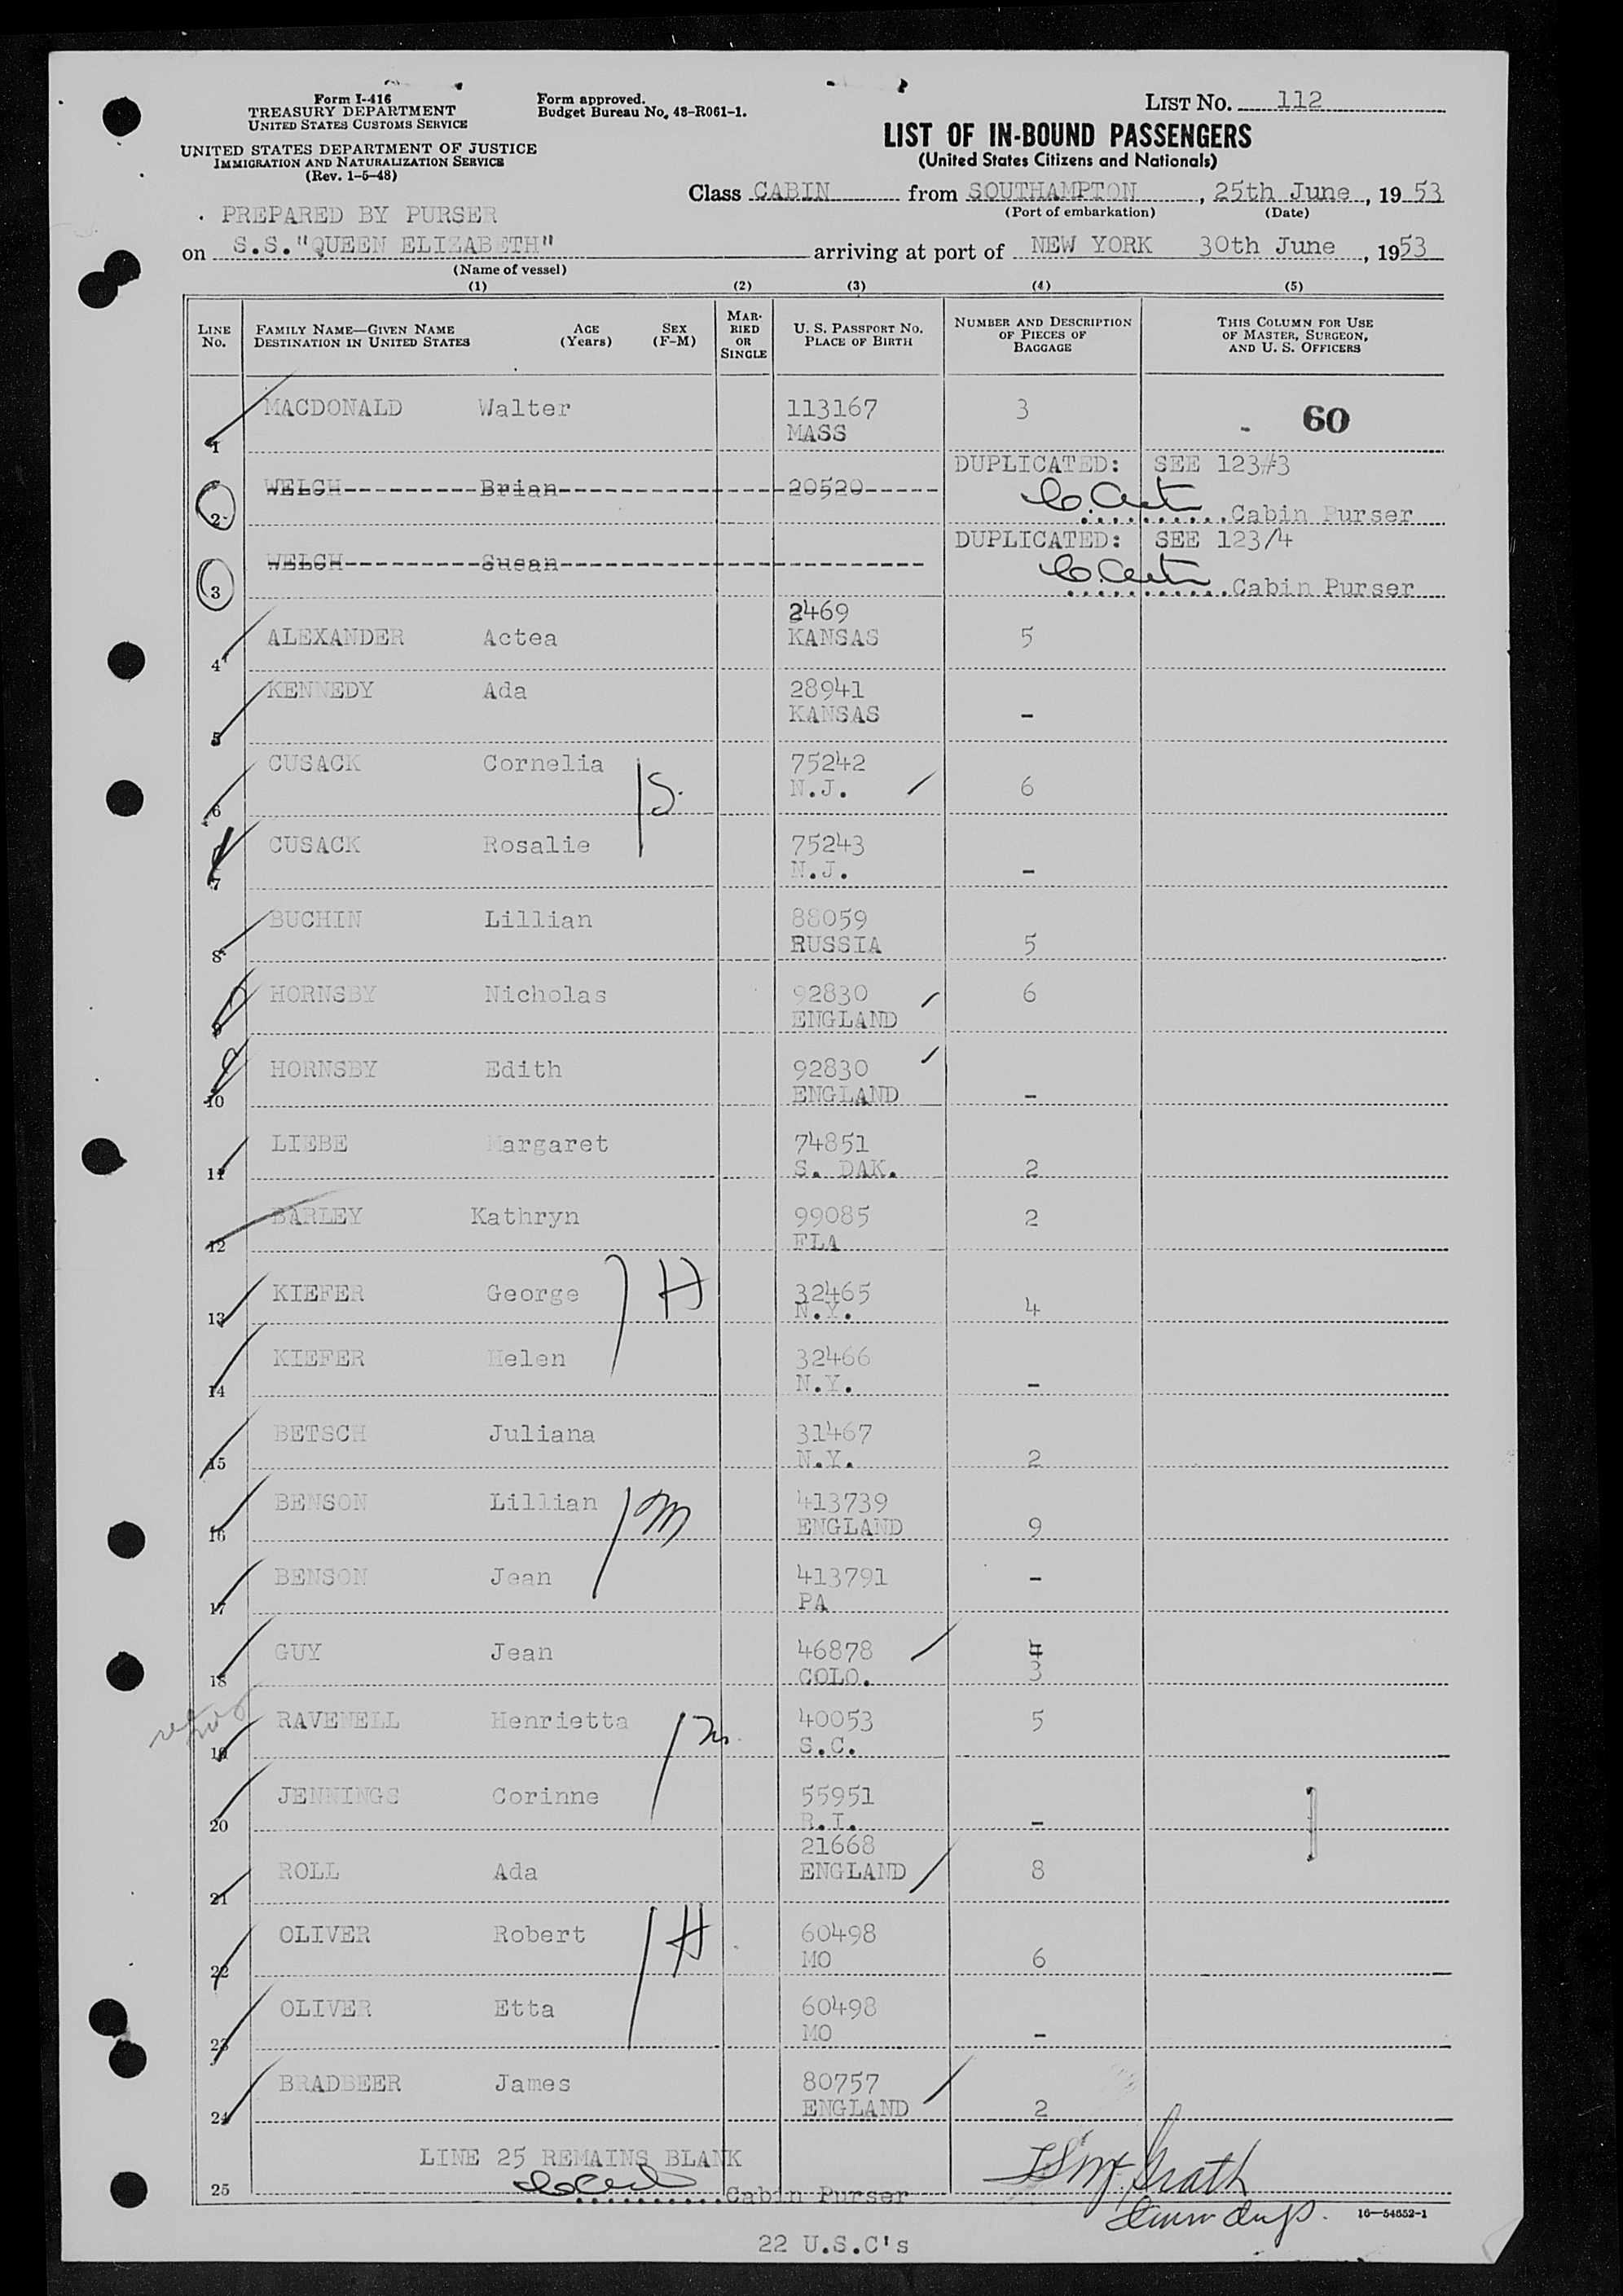 Form I-416
TREASURY DEPARTMENT
UNITED STATES CUSTOMS SERVICE
UNITED STATES DEPARTMENT OF JUSTICE
IMMIGRATION AND NATURALIZATION SERVICE
(Rev. 1-5-48)
Form approved.
Budget Bureau No. 43-R061-1.
LIST NO. 112
LIST OF IN-BOUND PASSENGERS
(United States Citizens and Nationals)
Class CABIN from SOUTHAMPTON, 25th June, 1953
(Port of embarkation) (Date)
PREPARED BY PURSER
on S.S."QUEEN ELIZABETH" arriving at port of NEW YORK 30th June, 1953
(Name of vessel)
(1) (2) (3) (4) (5)
LINE NO.
FAMILY NAME—GIVEN NAME
DESTINATION IN UNITED STATES
AGE (Years)
SEX (F-M)
MARRIED OR SINGLE
U. S. PASSPORT NO.
PLACE OF BIRTH
NUMBER AND DESCRIPTION OF PIECES OF BAGGAGE
THIS COLUMN FOR USE OF MASTER, SURGEON, AND U. S. OFFICERS
1 MACDONALD Walter 113167 3 - 60
MASS
DUPLICATED: SEE 123#3
2 WELCH Brian 20520
Cabin Purser
DUPLICATED: SEE 123/4
3 WELCH Susan
Cabin Purser
2469
4 ALEXANDER Actea KANSAS 5
5 KENNEDY Ada 28941
KANSAS -
6 CUSACK Cornelia S. 75242
N.J. 6
7 CUSACK Rosalie 75243
N.J. -
8 BUCHIN Lillian 88059
RUSSIA 5
9 HORNSBY Nicholas 92830 6
ENGLAND
10 HORNSBY Edith 92830
ENGLAND -
11 LIEBE Margaret 74851
S. DAK. 2
12 BARLEY Kathryn 99085 2
FLA
13 KIEFER George H 32465
N.Y. 4
14 KIEFER Helen 32466
N.Y. -
15 BETSCH Juliana 31467
N.Y. 2
16 BENSON Lillian m 413739
ENGLAND 9
17 BENSON Jean 413791 -
PA
18 GUY Jean 46878 4
COLO. 3
19 RAVENELL Henrietta 40053 5
S.C.
20 JENNINGS Corinne 55951
R.I. -
21668
21 ROLL Ada ENGLAND 8
22 OLIVER Robert H 60498
MO 6
23 OLIVER Etta 60498
MO -
24 BRADBEER James 80757
ENGLAND 2
LINE 25 REMAINS BLANK
25 Cabin Purser
16—54652-1
22 U.S.C's